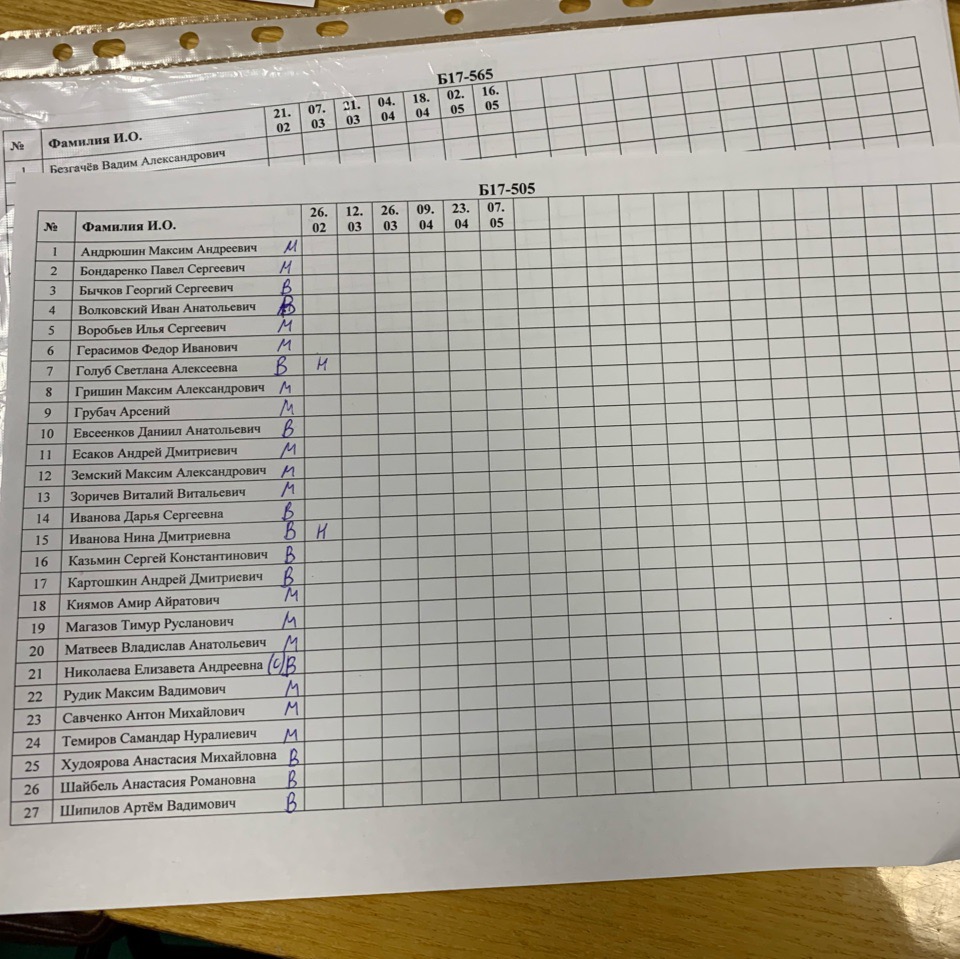 Б17-565
№ Фамилия И.О. 21.02 07.03 21.03 04.04 18.04 02.05 16.05
1 Безгачёв Вадим Александрович
Б17-505
№ Фамилия И.О. 26.02 12.03 26.03 09.04 23.04 07.05
1 Андрюшин Максим Андреевич М
2 Бондаренко Павел Сергеевич М
3 Бычков Георгий Сергеевич В
4 Волковский Иван Анатольевич В
5 Воробьев Илья Сергеевич М
6 Герасимов Федор Иванович М
7 Голуб Светлана Алексеевна В Н
8 Гришин Максим Александрович М
9 Грубач Арсений М
10 Евсеенков Даниил Анатольевич В
11 Есаков Андрей Дмитриевич М
12 Земский Максим Александрович М
13 Зоричев Виталий Витальевич М
14 Иванова Дарья Сергеевна В
15 Иванова Нина Дмитриевна В Н
16 Казьмин Сергей Константинович В
17 Картошкин Андрей Дмитриевич В
18 Киямов Амир Айратович М
19 Магазов Тимур Русланович М
20 Матвеев Владислав Анатольевич М
21 Николаева Елизавета Андреевна (с) В
22 Рудик Максим Вадимович М
23 Савченко Антон Михайлович М
24 Темиров Самандар Нуралиевич М
25 Худоярова Анастасия Михайловна В
26 Шайбель Анастасия Романовна В
27 Шипилов Артём Вадимович В